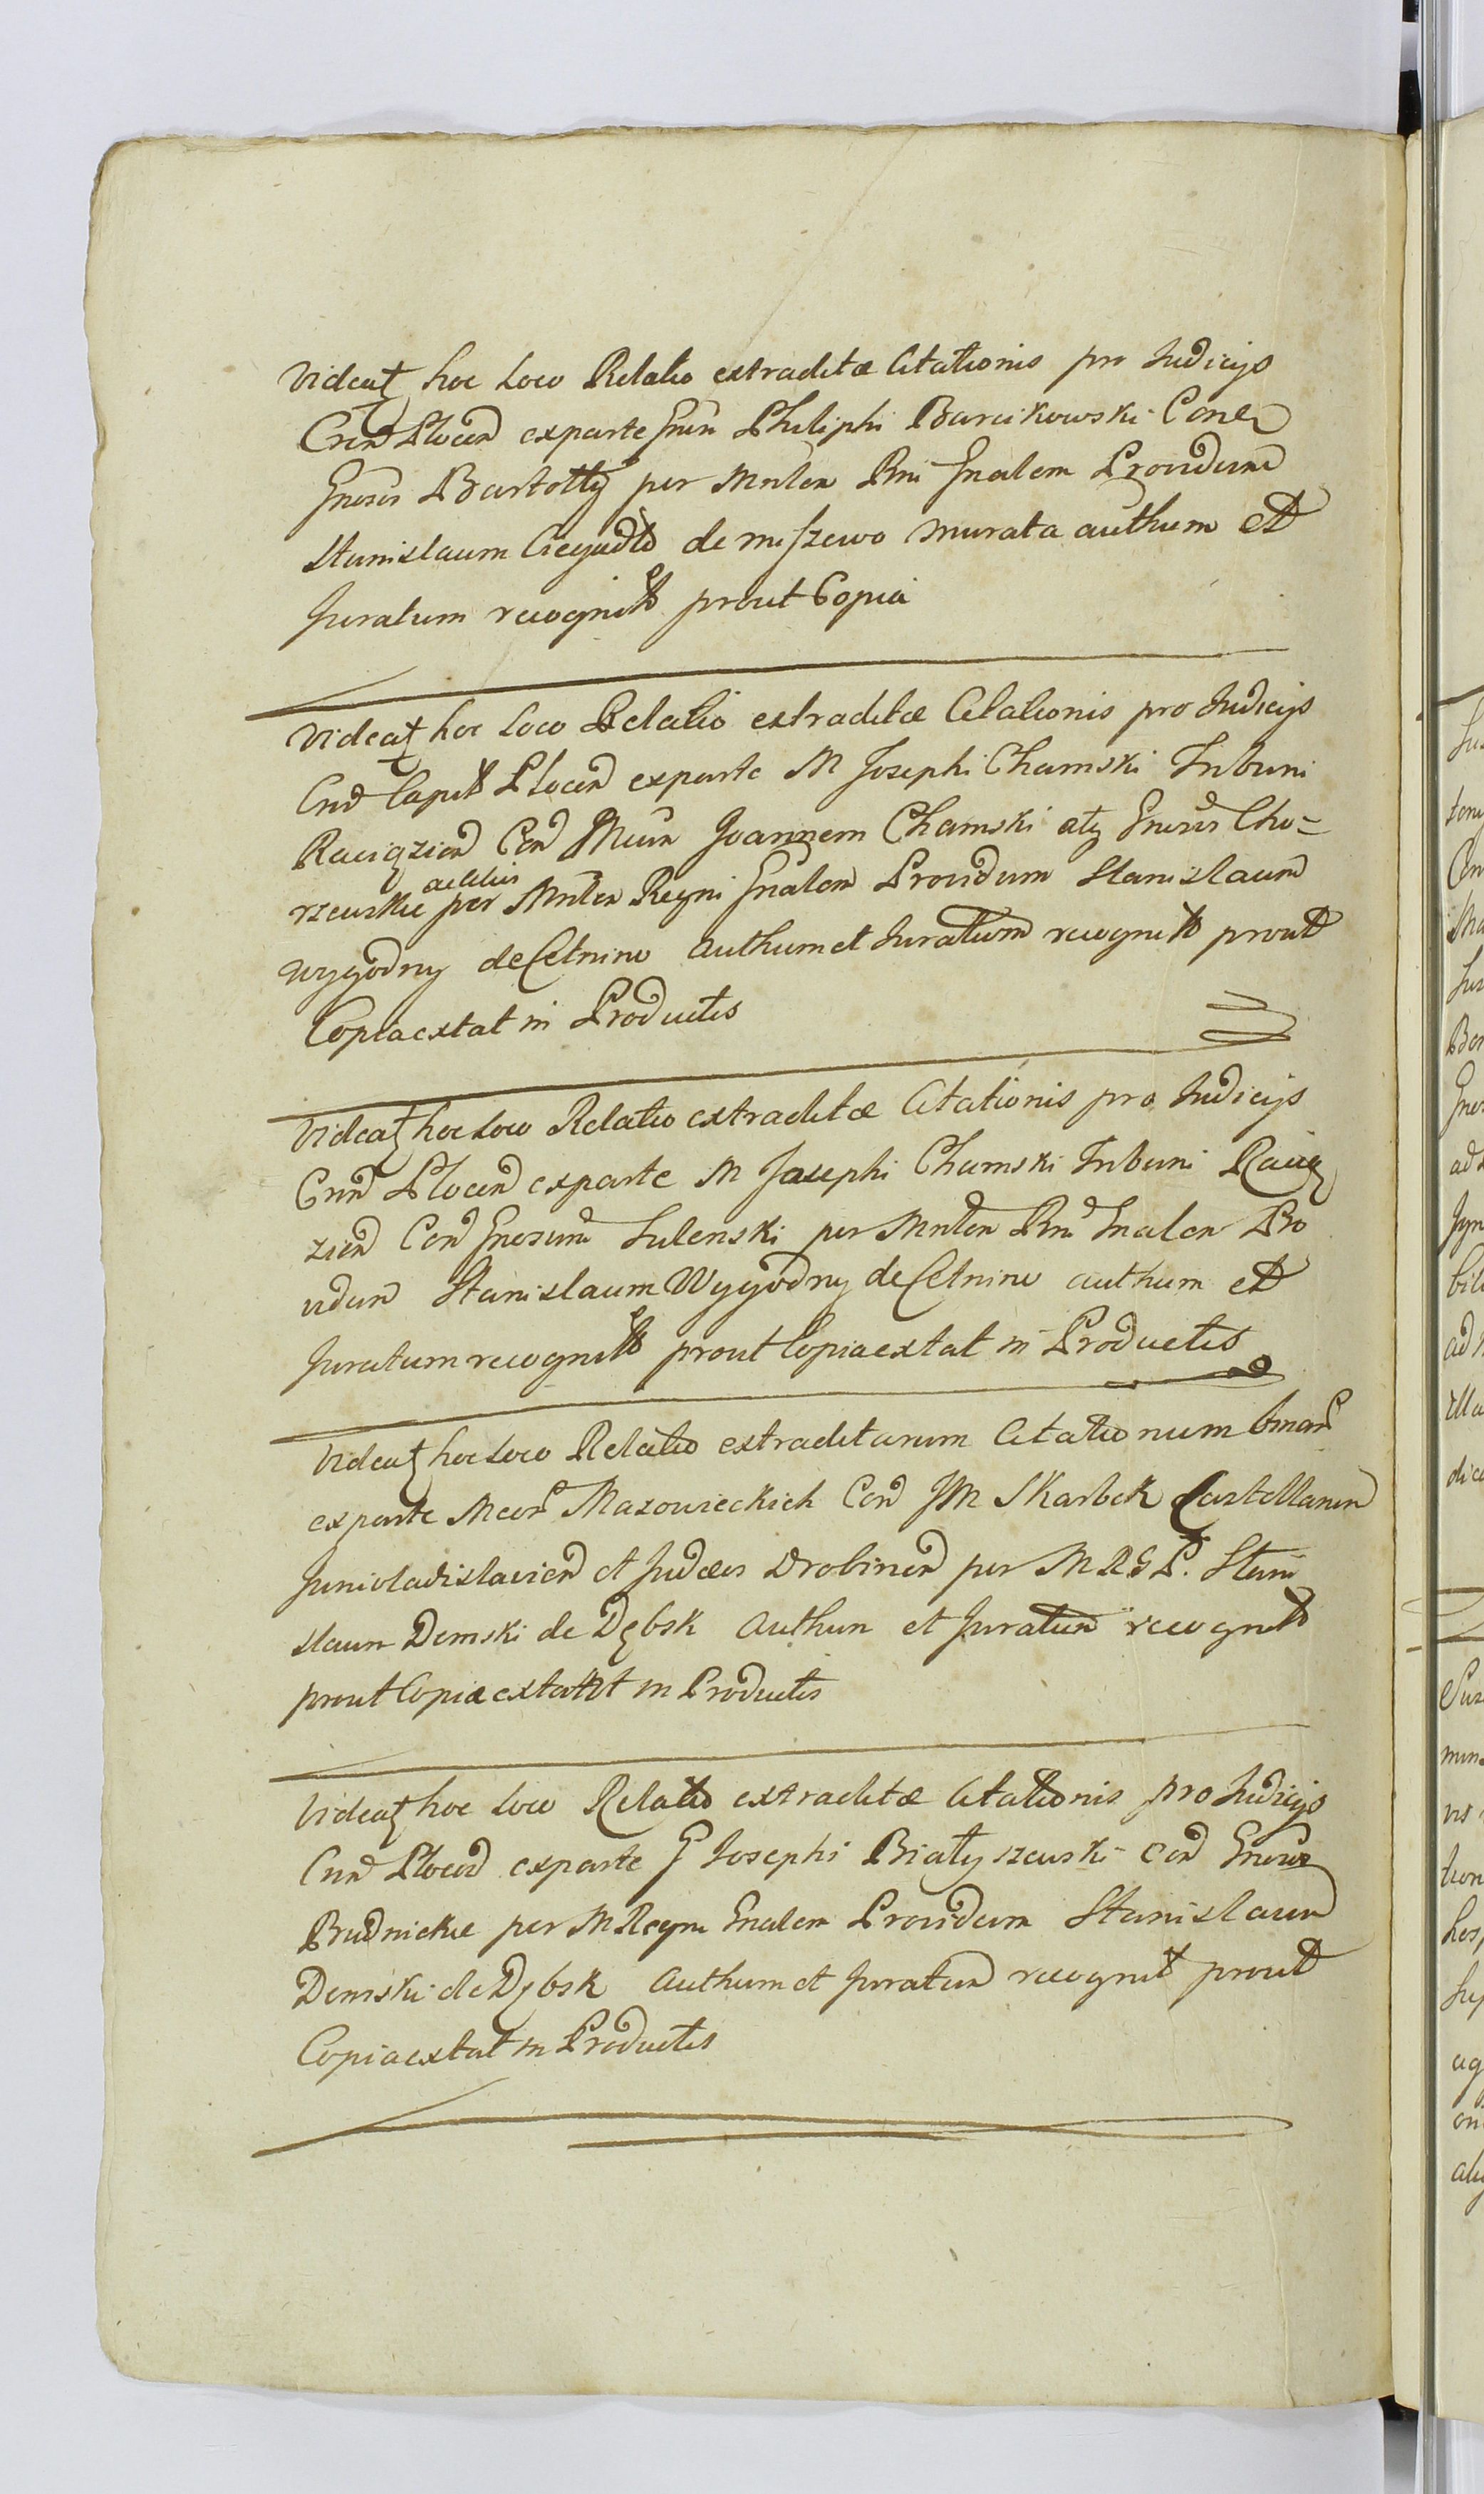 Videat hoc Loco Relatio extraditæ Citationis pro Judicijs
Crn Plocen exparte Gnrn Philiphi Barcikowski Con
Gnosis Bartołty per Mnlem Rni Gnalem Providum
Stanislaum de Miszewo Murata authum et
Juratum recognit prout Copia
Videat hoc Loco Relatio extraditæ Citationis pro Judicijs
Cnd Capit Plocen exparte M Josephi Chamski Tribuni
Raciązien Con Mcum Joannem Chamski atq Gnosis Cho=
rzewskie actiis per Mnlem Regni Gnalem Providum Stanislaum
Wygodny de Cetnino authum et Juratum recognit prout
Copia extat in Productis
Videat hoc Loco Relatio extraditæ Citationis pro Judicijs
Crn Plocen exparte M Josephi Chamski Tribuni Racią
zien Con Gnosum Sulenski per Mnlem Rni Gnalem Pro
vidum Stanislaum Wygodny de Cetnino authum et
Juratum recognit prout Copia extat in Productis
Videat hoc Loco Relatio extraditarum Citationum
exparte Mcor Mazowieckich Con JM Skarbek Castellanum
Junivladislavien et Judæos Drobinen per M R G P. Stani
slaum Demski de Dębsk Authum et Juratum recognit
prout Copiæ extant in Productis
Videat hoc Loco Relatio extraditæ Citationis pro Judicijs
Cnd Plocen exparte G Josephi Białyszewski Con Gnosos
Brudnickie per M Regni Gnalem Providum Stanislaum
Demski de Dębsk Authum et Juratum recognit prout
Copia extat in Productis